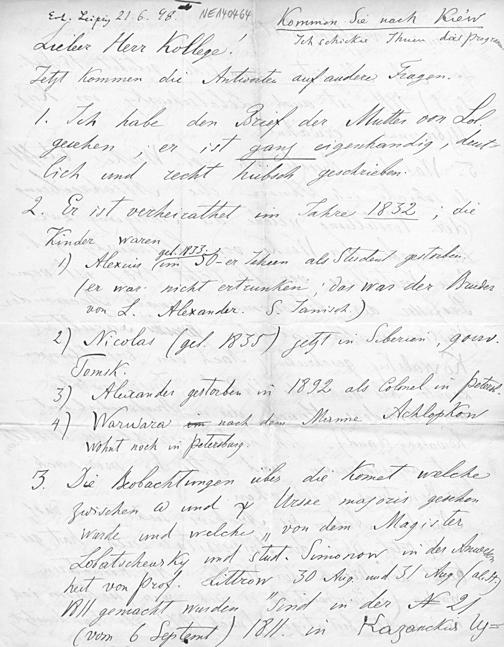 Erh. Leipzig 21.6.98. NE140464
Kommen Sie nach Kiew
Ich schicke Ihnen das Program
Lieber Herr Kollege!
Jetzt kommen die Antworten auf andere Fragen.
1. Ich habe den Brief der Mutter von Lob.
gesehen; er ist ganz eigenhändig, deut-
lich und recht hübsch geschrieben.
2. Er ist verheirathet im Jahre 1832; die
Kinder waren
1) Alexius (geb. 1833.) im 50-er Jahren als Student gestorben.
(er was nicht ertrunken; das was der Bruder
von L. Alexander. S. Janisch.)
2) Nicolas (geb. 1835) jetzt in Siberien, gouv.
Tomsk.
3) Alexander gestorben in 1892 als Colonel in Petersb.
4) Warwara nach dem Manne Achlopkow
wohnt noch in Petersburg.
3. Die Beobachtungen über die Komet welche
zwischen ω und χ Ursae majoris gesehen
wurde und welche „von dem Magister
Lobatschewsky und stud. Simonow in der Anwesen
heit von Prof. Littrow 30 Aug und 31 Aug (al. St.)
1811 gemacht wurden" sind in der № 21
(vom 6 Septemb) 1811. in Kazanckiя Из=